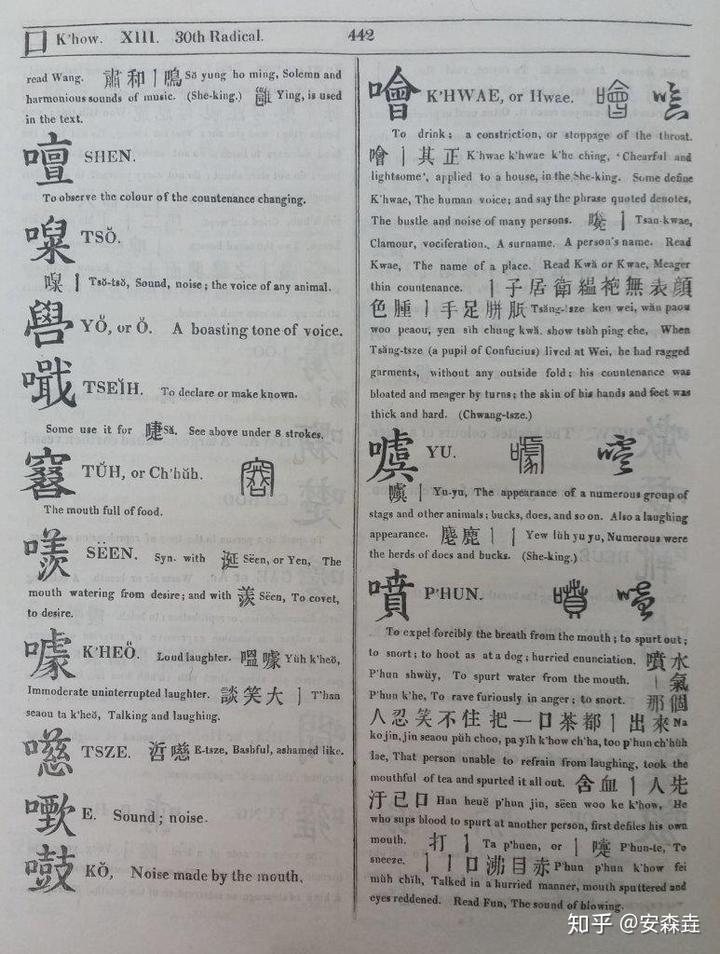 口 K'how. XIII. 30th Radical. 442
read Wang. 肅和丨鳴 Sŏ yung ho ming, Solemn and
harmonious sounds of music. (She-king.) Ying, is used
in the text.
嚪 SHEN.
To observe the colour of the countenance changing.
TSŎ.
丨 Tsŏ-tsŏ, Sound, noise; the voice of any animal.
YŎ, or Ŏ. A boasting tone of voice.
TSEĬH. To declare or make known.
Some use it for 啑 Să. See above under 8 strokes.
TŬH, or Ch'hŭh.
The mouth full of food.
羨 SËEN. Syn. with 涎 Sëen, or Yen, The
mouth watering from desire; and with 羨 Sëen, To covet,
to desire.
噱 K'HEŎ. Loud laughter. 嗢噱 Yŭh k'heŏ,
Immoderate uninterrupted laughter. 談笑大丨 T'han
seaou ta k'heŏ, Talking and laughing.
TSZE. E-tsze, Bashful, ashamed like.
E. Sound; noise.
KŎ, Noise made by the mouth.
噲 K'HWAE, or Hwae.
To drink; a constriction, or stoppage of the throat.
噲丨其正 K'hwae k'hwae k'he ching, 'Chearful and
lightsome', applied to a house, in the She-king. Some define
K'hwae, The human voice; and say the phrase quoted denotes,
The bustle and noise of many persons. 丨 Tsan-kwae,
Clamour, vociferation. A surname. A person's name. Read
Kwae, The name of a place. Read Kwă or Kwae, Meager
thin countenance. 丨子居衛縕袍無表顔
色腫丨手足胼胝 Tsăng-tsze keu wei, wăn paou
woo peaou, yen sih chung kwă. show tsŭh ping che, When
Tsăng-tsze (a pupil of Confucius) lived at Wei, he had ragged
garments, without any outside fold; his countenance was
bloated and meager by turns; the skin of his hands and feet was
thick and hard. (Chwang-tsze.)
噳 YU.
噳丨 Yu-yu, The appearance of a numerous group of
stags and other animals; bucks, does, and so on. Also a laughing
appearance. 麀鹿丨丨 Yew lŭh yu yu, Numerous were
the herds of does and bucks. (She-king.)
噴 P'HUN.
To expel forcibly the breath from the mouth; to spurt out;
to snort; to hoot as at a dog; hurried enunciation. 噴水
P'hun shwŭy, To spurt water from the mouth. 丨氣
P'hun k'he, To rave furiously in anger; to snort. 那個
人忍笑不住把一口茶都丨出來 Na
ko jin, jin seaou pŭh choo, pa yĭh k'how ch'ha, too p'hun ch'hŭh
lae, That person unable to refrain from laughing, took the
mouthful of tea and spurted it all out. 含血丨人先
汙己口 Han heuĕ p'hun jin, sëen woo ke k'how, He
who sups blood to spurt at another person, first defiles his own
mouth. 打丨 Ta p'huen, or 丨嚏 P'hun-te, To
sneeze. 丨丨口沸目赤 P'hun p'hun k'how fei
mŭh chĭh, Talked in a hurried manner, mouth sputtered and
eyes reddened. Read Fun, The sound of blowing.
知乎 @安森垚